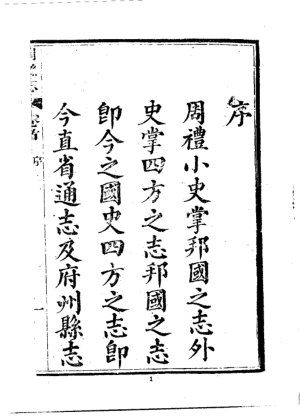 序
周禮小史掌邦國之志外
史掌四方之志邦國之志
卽今之國史四方之志卽
今直省通志及府州縣志
卷首
序
一
1